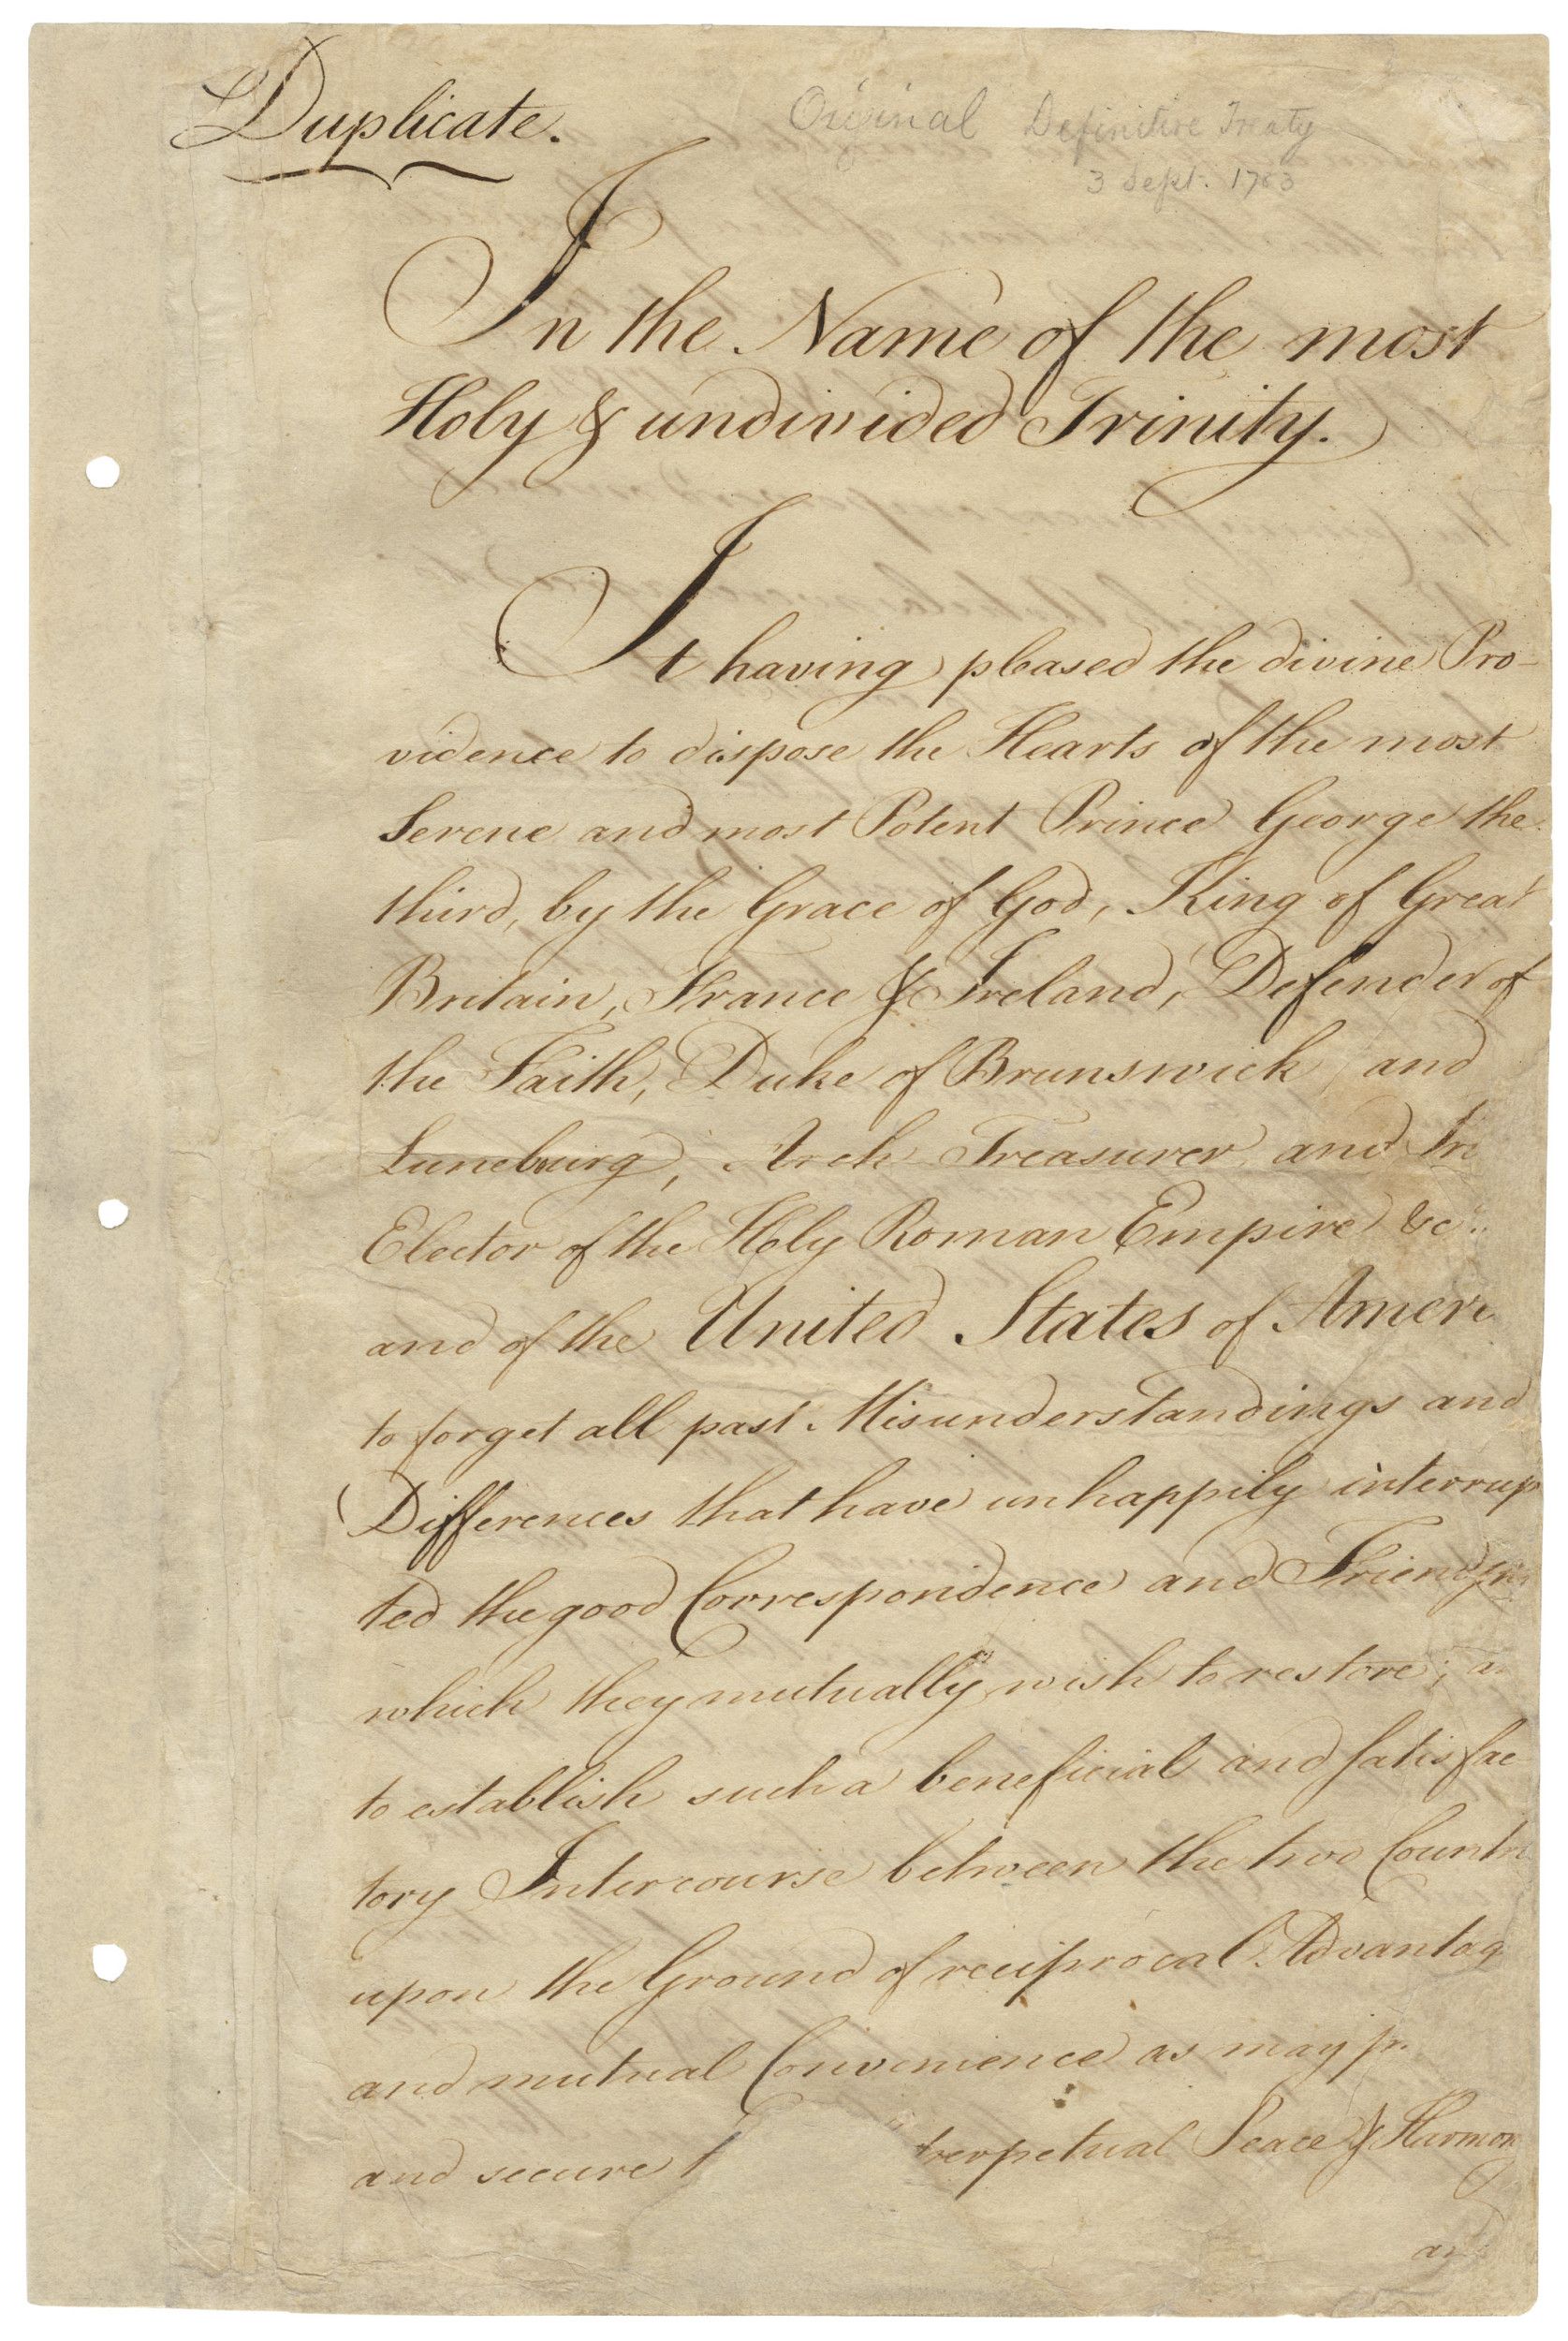 Duplicate.
Original Definitive Treaty
3 Sept. 1783
In the Name of the most
Holy & undivided Trinity.
It having pleased the divine Pro-
vidence to dispose the Hearts of the most
Serene and most Potent Prince George the
third, by the Grace of God, King of Great
Britain, France & Ireland, Defender of
the Faith, Duke of Brunswick and
Luneburg, Arch Treasurer and
Elector of the Holy Roman Empire &c.
and of the United States of Ameri
to forget all past Misunderstandings and
Differences that have unhappily interrup
ted the good Correspondence and
which they mutually wish to restore;
to establish such a beneficial and satisfac
tory Intercourse between the two Countri
upon the Ground of reciprocal Advantag
and mutual Convenience as may
and secure perpetual Peace & Harmon